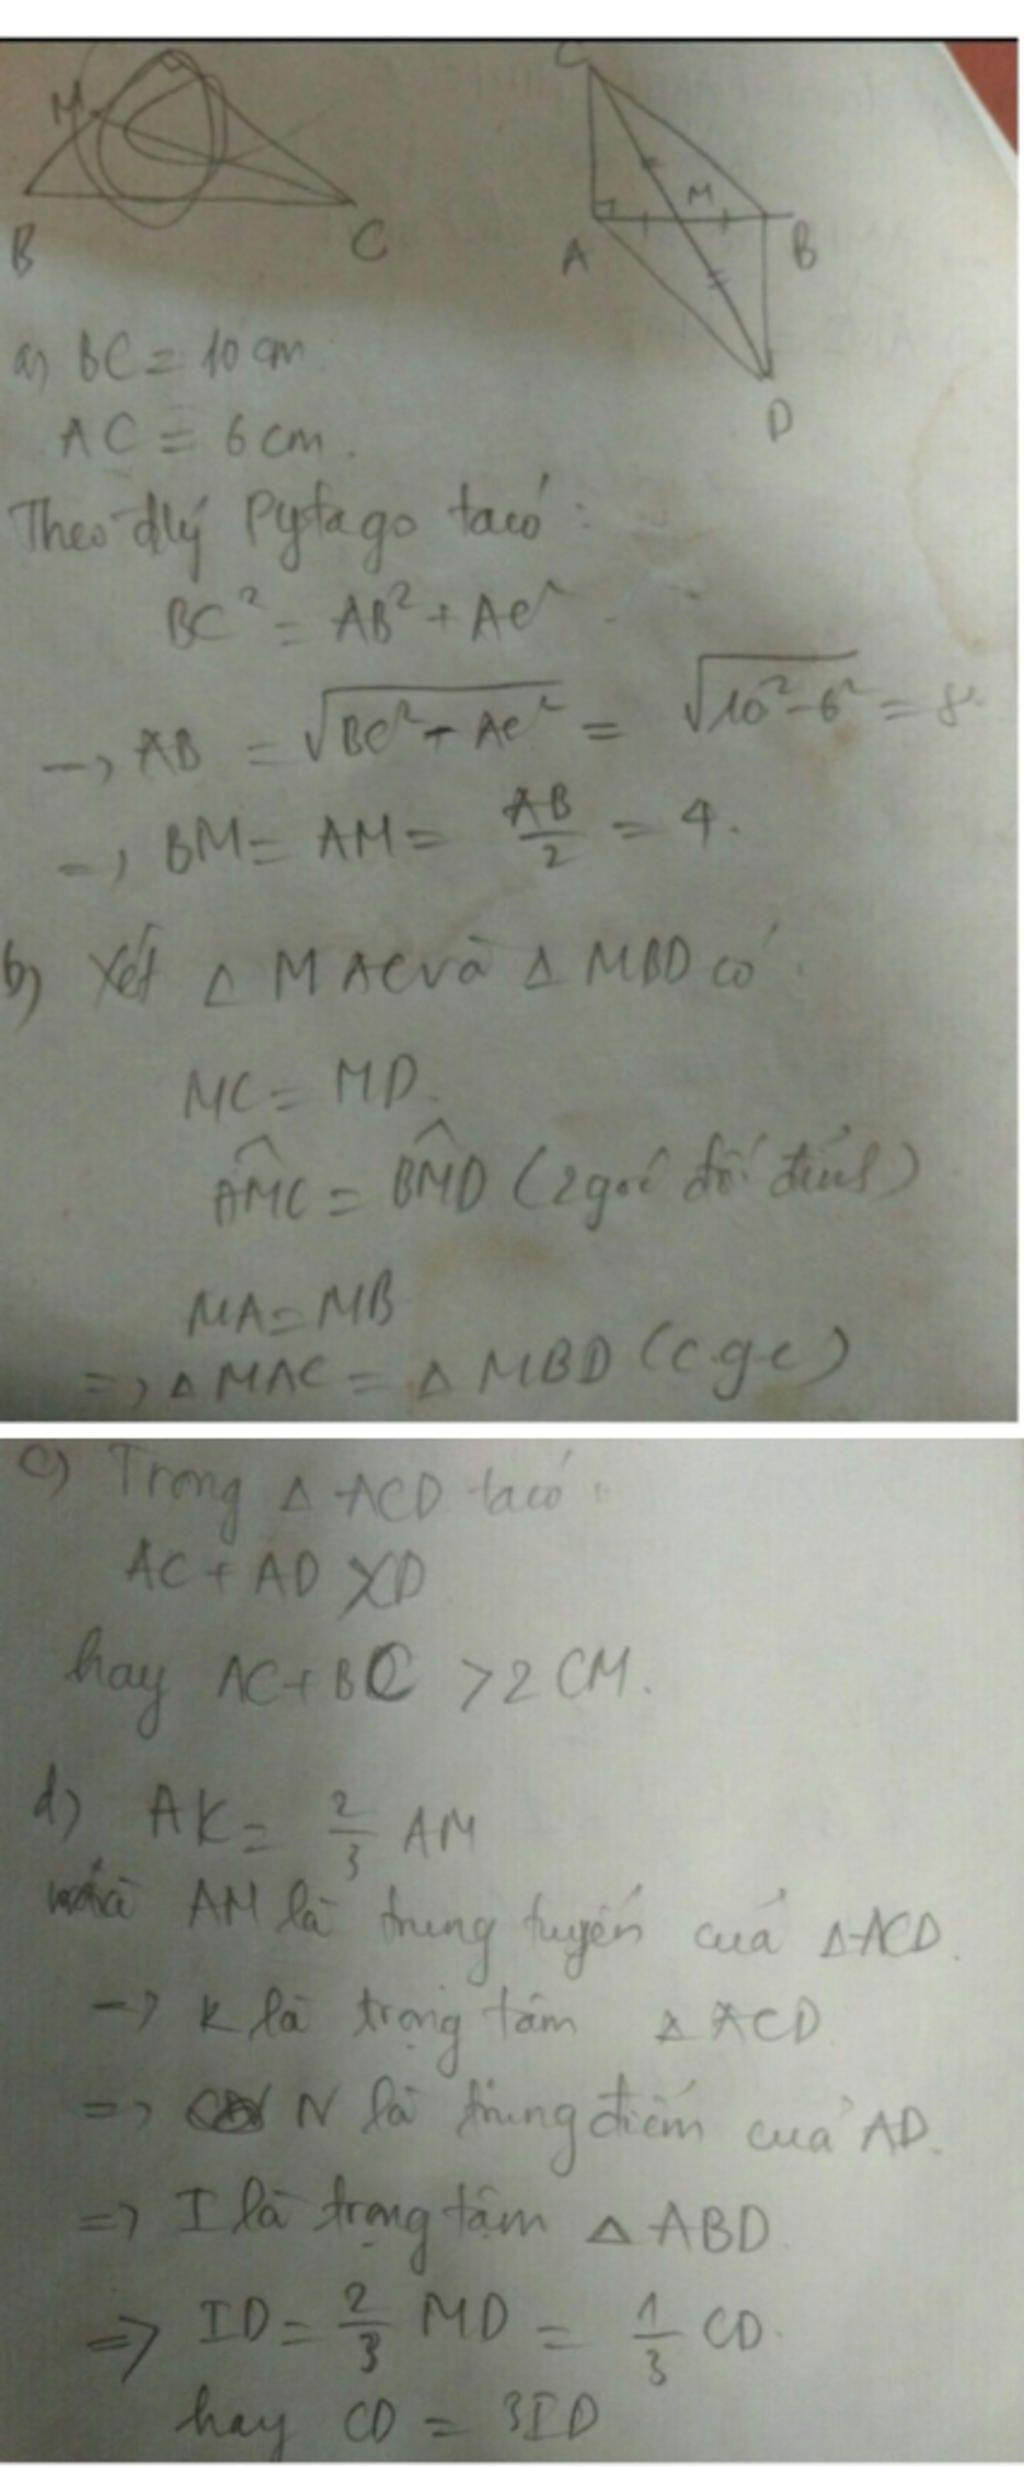 M
B
C
C
M
A
B
D
a) BC = 10 cm
AC = 6 cm.
Theo đlý Pytago ta có:
BC² = AB² + AC²
→ AB = √BC² - AC² = √10² - 6² = 8
→ BM = AM = AB/2 = 4.
b) Xét △ MAC và △ MBD có
MC = MD.
AMC = BMD (2 góc đối đỉnh)
MA = MB
⇒ △ MAC = △ MBD (c.g.c)
c) Trong △ ACD ta có:
AC + AD > CD
hay AC + BC > 2 CM.
d) AK = 2/3 AM
mà AM là trung tuyến của △ ACD.
→ K là trọng tâm △ ACD
⇒ N là trung điểm của AD.
⇒ I là trọng tâm △ ABD
⇒ ID = 2/3 MD = 1/3 CD.
hay CD = 3ID